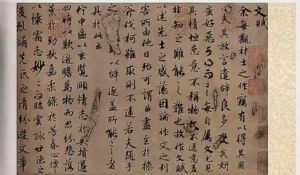 文賦
余每觀材士之作竊有以得其用
心夫其放言遣辭良多變矣妍
蚩好惡可得而言每自屬文尤見
其情恆患意不稱物文不逮意蓋
非知之難能之難也故作文賦
以述先士之盛藻因論作文之利
害所由他日殆可謂曲盡其妙至於操
斧伐柯雖取則不遠若夫隨手
之變良難以辭逮蓋所能言者
具於此云
佇中區以玄覽頤情志於典墳遵
四時以歎逝瞻萬物而思紛悲落葉
於勁秋喜柔條於芳春心懍
懍以懷霜志眇眇而臨雲詠世德之
駿烈誦先民之清芬遊文章